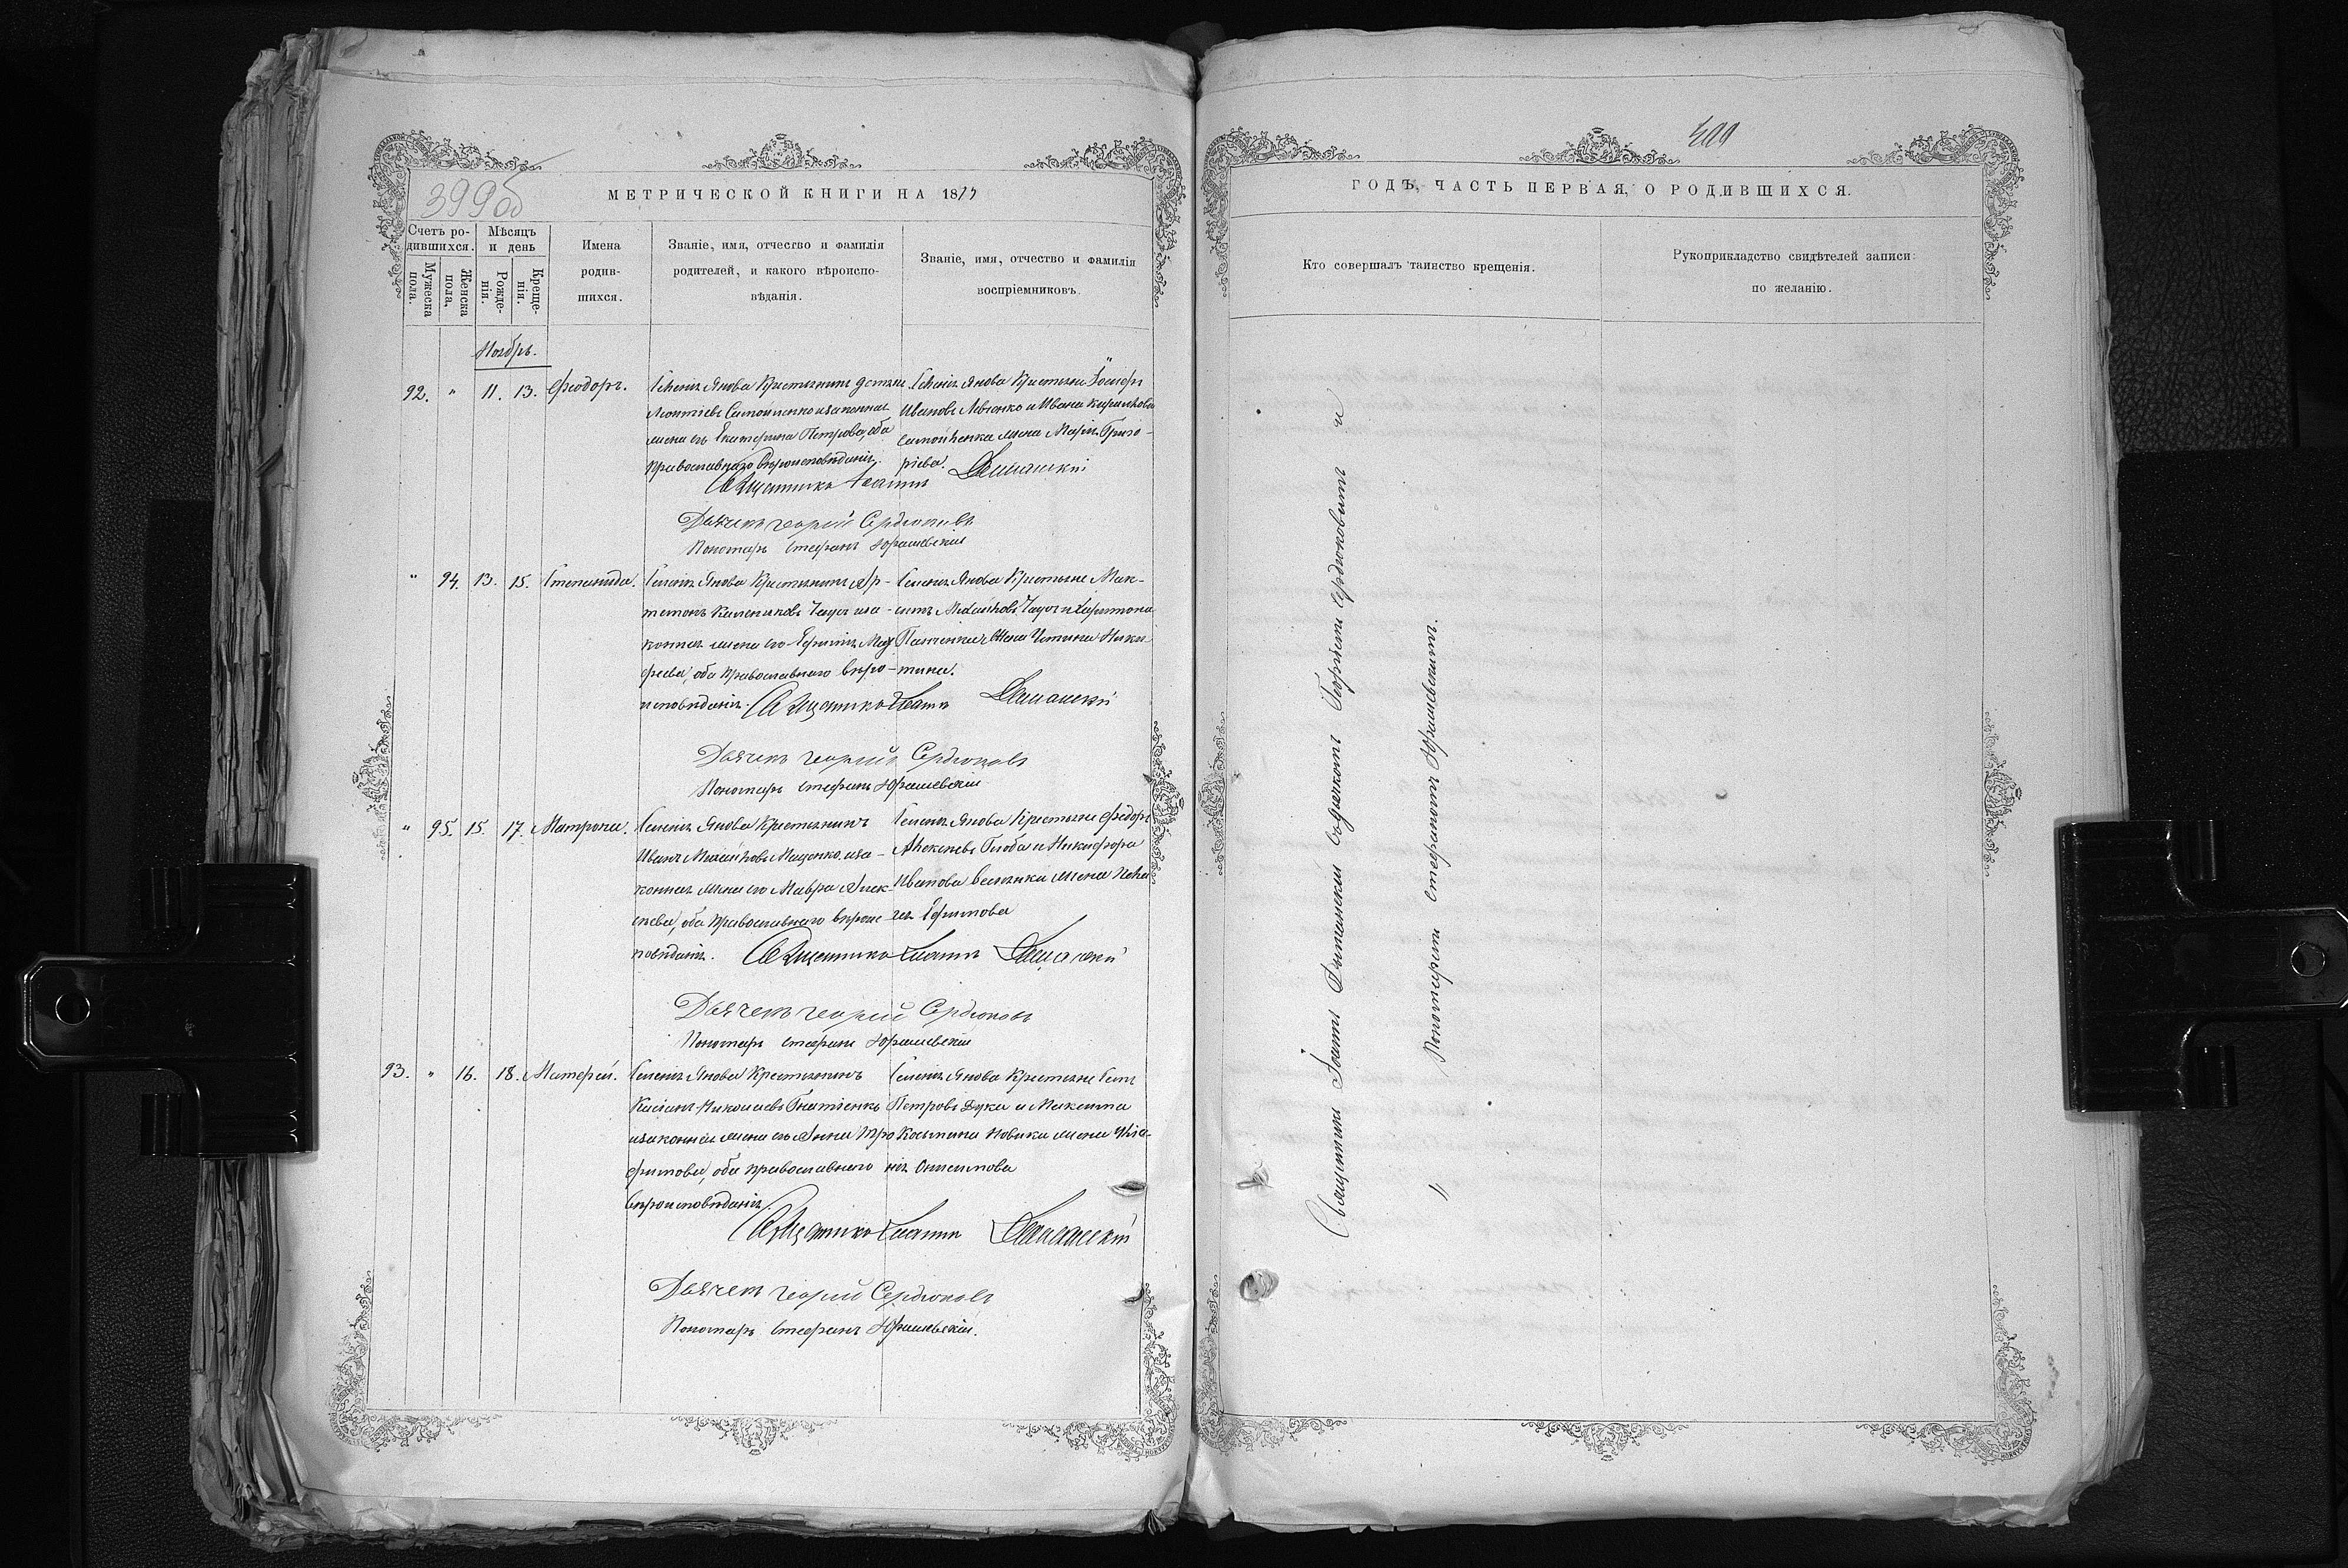 399об
МЕТРИЧЕСКОЙ КНИГИ НА 1877
Счетъ ро-
дившихся.
Мужеска
пола.
Женска
пола.
Мѣсяцъ
и день
Рожде-
нія.
Креще-
нія.
Имена
родив-
шихся.
Званіе, имя, отчество и фамилія
родителей, и какого вѣроиспо-
вѣданія.
Званіе, имя, отчество и фамилія
воспріемниковъ.
Ноябрь.
92. " 11. 13. Феодоръ.
Селенія Янова Крестьянинъ
Леонтіевъ Самойленко и законная
жена его Екатерина Петрова, оба
православнаго вѣроисповѣданія.
Селенія Янова Крестьяне Іосифъ
Ивановъ Левченко и Ивана Кирилова
Самойленка жена Марія Григо-
ріева.
Священникъ Іоаннъ Дашинскій
Дьячекъ Георгій Сердюковъ
Пономарь Стефанъ Юрашевскій
" 94. 13. 15. Степанида.
Селенія Янова Крестьянинъ Ар-
темонъ Калениковъ Чаусъ и за-
конная жена его Евфимія Мат-
феева, оба православнаго вѣро-
исповѣданія.
Селенія Янова Крестьяне Мак-
симъ Михайловъ Чаусъ и Харитона
Панченка жена Устина Ники-
тина.
Священникъ Іоаннъ Дашинскій
Дьячекъ Георгій Сердюковъ
Пономарь Стефанъ Юрашевскій
" 95. 15. 17. Матрона.
Селенія Янова Крестьянинъ
Иванъ Михайловъ Мащенко, и за-
конная жена его Мавра Алек-
сѣева, оба православнаго вѣроис-
повѣданія.
Селенія Янова Крестьяне Федоръ
Алексѣевъ Глоба и Никифора
Иванова жена Пела-
гея Ефимова
Священникъ Іоаннъ Дашинскій
Дьячекъ Георгій Сердюковъ
Пономарь Стефанъ Юрашевскій
93. " 16. 18. Матфей.
Селенія Янова Крестьянинъ
Касіанъ Николаевъ Гнатченко
и законная жена его Анна Тро-
фимова, оба православнаго
вѣроисповѣданія.
Селенія Янова Крестьяне
Петровъ Дука и Максима
Косьмина Новика жена
нія Онисимова
Священникъ Іоаннъ Дашинскій
Дьячекъ Георгій Сердюковъ
Пономарь Стефанъ Юрашевскій.
400
ГОДЪ, ЧАСТЬ ПЕРВАЯ, О РОДИВШИХСЯ.
Кто совершалъ таинство крещенія.
Рукоприкладство свидѣтелей записи
по желанію.
Священникъ Іоаннъ Дашинскій съ дьячкомъ Георгіемъ Сердюковымъ и
Пономаремъ Стефаномъ Юрашевскимъ.